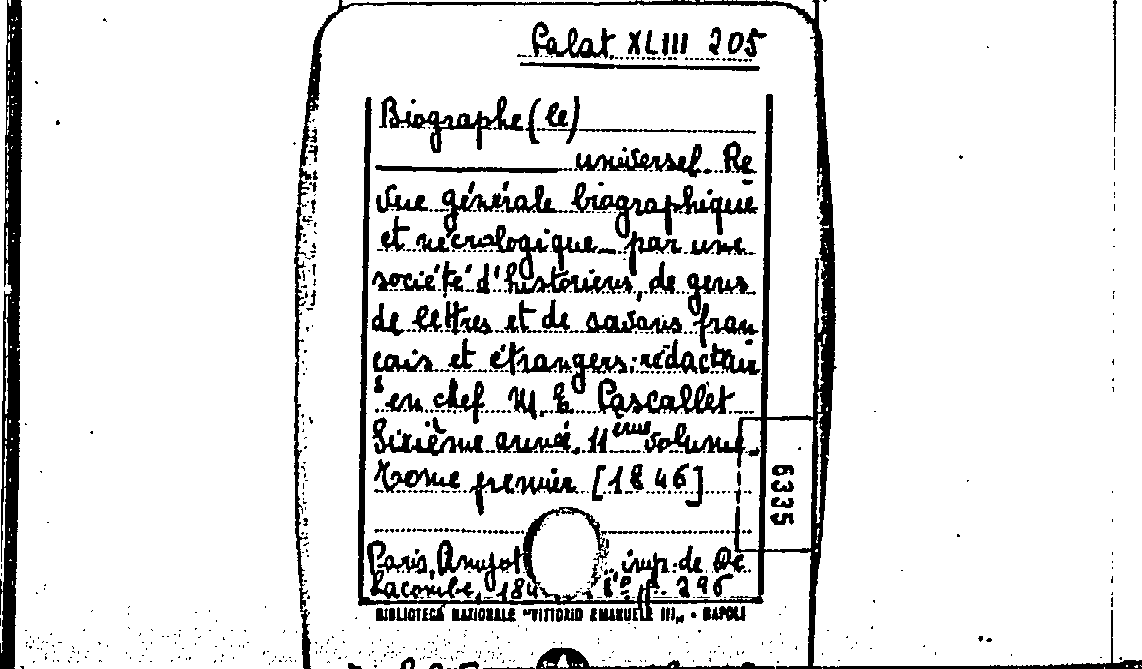 Palat. XLIII 205
Biographe (le)
universel. Re
vue générale biographique
et nécrologique par une
société d'historiens, de gens
de lettres et de savans fran
çais et étrangers; rédacteur
en chef M. E. Pascallet
Sixième année. 11ème volume.
Tome premier [1846]
6335
Paris, Amyot imp. de De
lacombe, 184 8º p. 296
BIBLIOTECA NAZIONALE "VITTORIO EMANUELE III" - NAPOLI